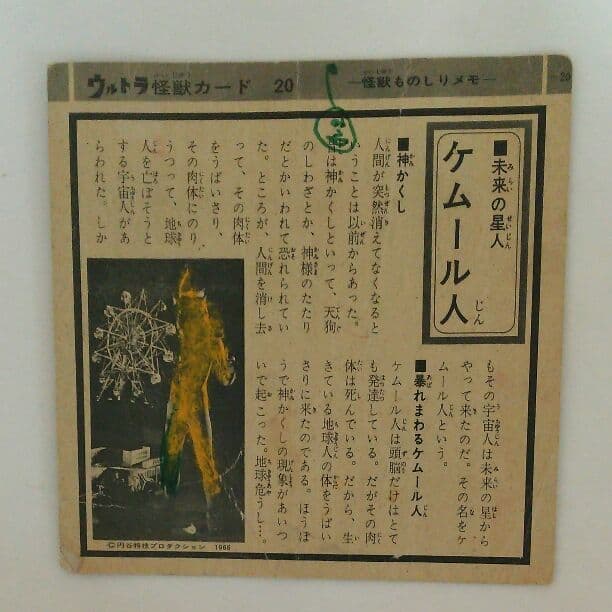 ウルトラ怪獣カード 20
―怪獣ものしりメモ―
20
■未来の星人
ケムール人
■神かくし
人間が突然消えてなくなると
いうことは以前からあった。
昔は神かくしといって、天狗
のしわざとか、神様のたたり
だとかいわれて恐れられてい
た。ところが、人間を消し去
って、その肉体
をうばいさり、
その肉体にのり
うつって、地球
人を亡ぼそうと
する宇宙人があ
らわれた。しか
もその宇宙人は未来の星から
やって来たのだ。その名をケ
ムール人という。
■暴れまわるケムール人
ケムール人は頭脳だけはとて
も発達している。だがその肉
体は死んでいる。だから、生
きている地球人の体をうばい
さりに来たのである。ほうぼ
うで神かくしの現象があいつ
いで起こった。地球危うし…。
©円谷特技プロダクション 1966